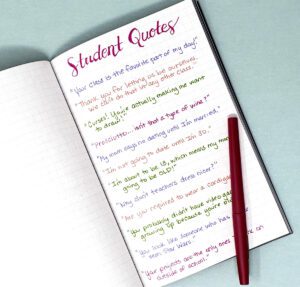 Student Quotes
"Your class is the favorite part of my day!"
"Thank you for letting us be ourselves.
We can't do that in any other class."
"Curses! You're actually making me want
to draw!"
"Prosciutto... isn't that a type of wine?"
"My mom says no dating until I'm married."
"I'm not going to date until I'm 30."
"I'm about to be 18, which means my mom
going to be OLD!"
"Why don't teachers dress nicer?"
"Are you required to wear a cardigan
"You probably didn't have video games
growing up because you're
"You look like someone who has
seen Star Wars."
"Your projects are the only ones on
outside of school."